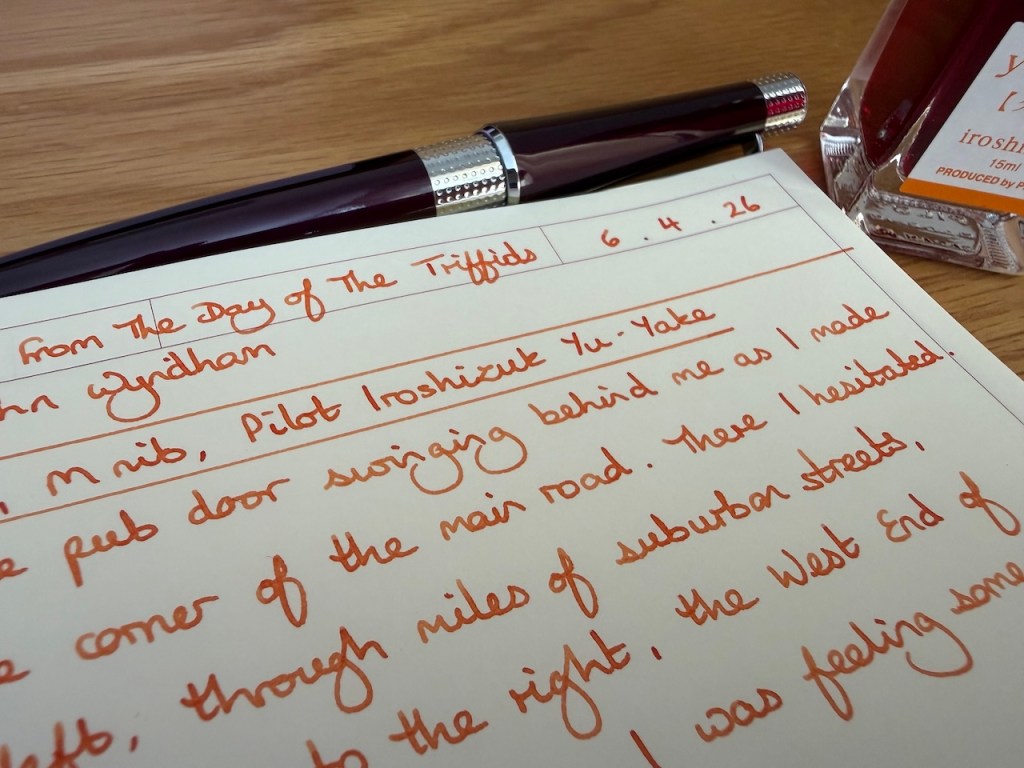 From The Day of The Triffids
6 . 4 . 26
Wyndham
M nib, Pilot Iroshizuk Yu-Yake
pub door swinging behind me as I made
corner of the main road. There I hesitated.
left, through miles of suburban streets,
to the right, the West End of
I was feeling some
iroshi
15ml
PRODUCED by P